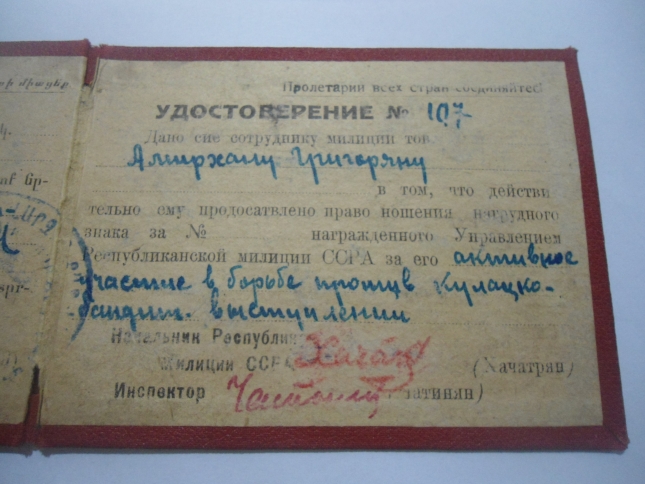 Պրոլետարներ
Пролетарии всех стран соединяйтесь
УДОСТОВЕРЕНИЕ № 107
Дано сие сотруднику милиции тов.
Амирхану Григоряну
в том, что действи
тельно ему предосатвлено право ношения нагрудного
знака за № награжденного Управлением
Республиканской милиции ССРА за его активное
участие в борьбе против кулацко-
бандит. выступлений
Начальник Республик
Милиции ССРА (Хачатрян)
Инспектор